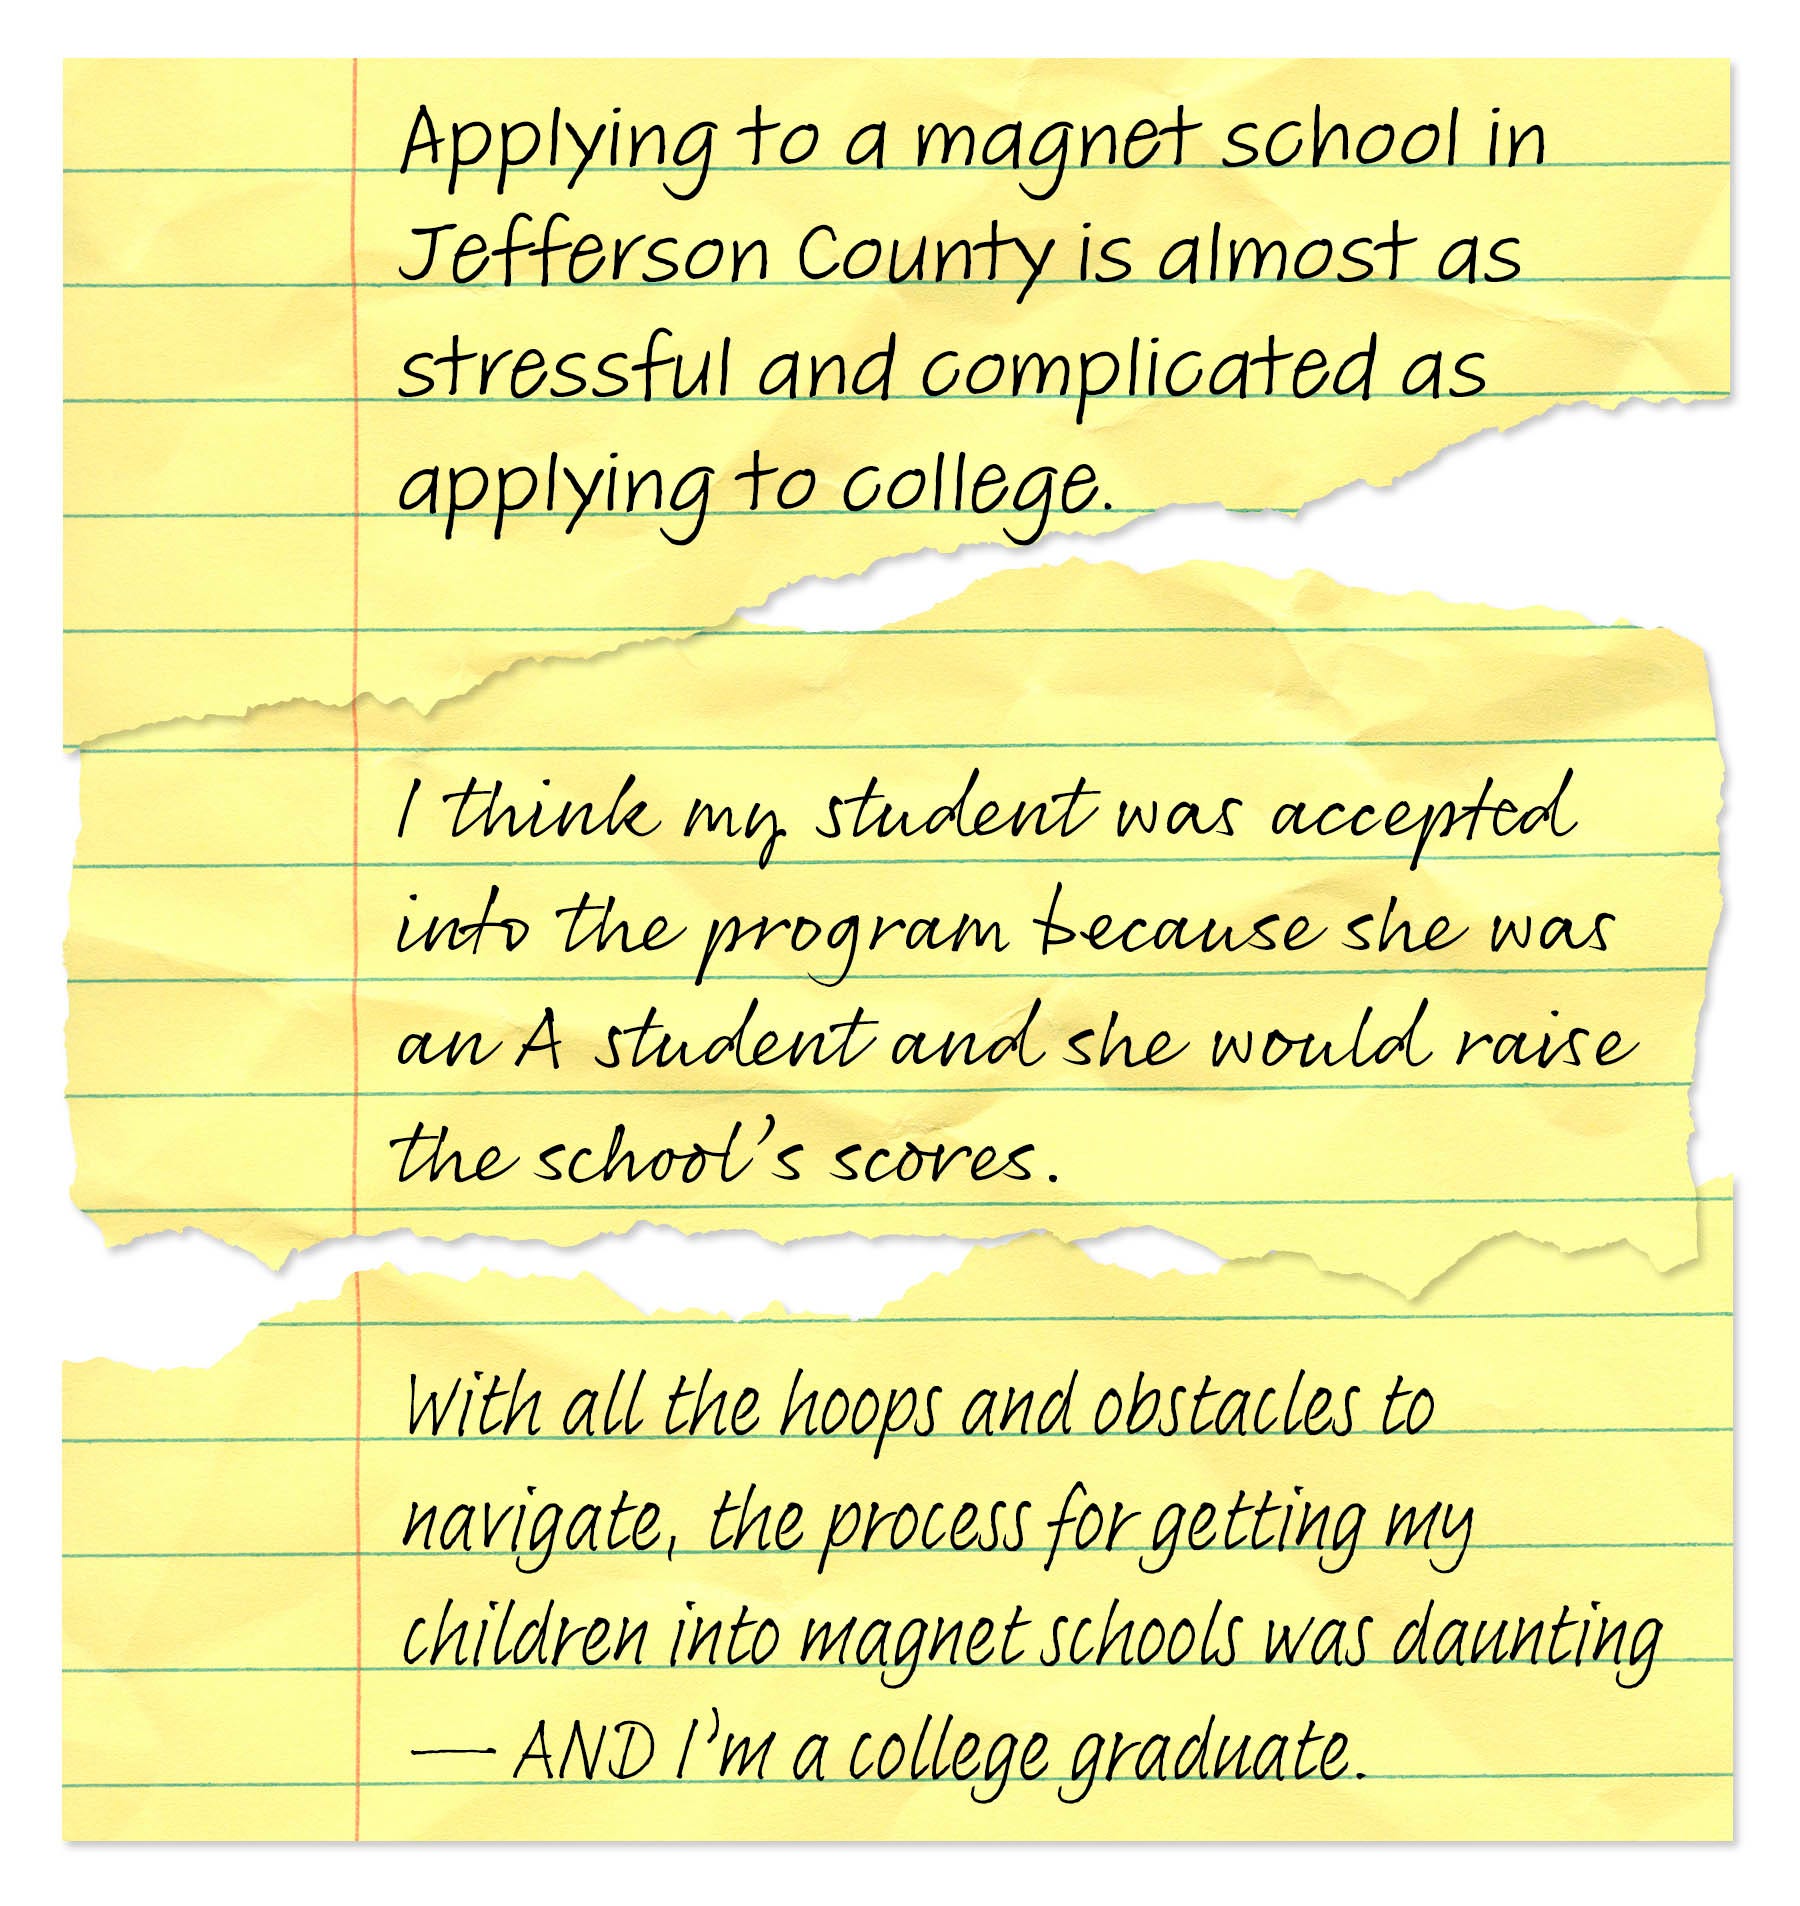 Applying to a magnet school in
Jefferson County is almost as
stressful and complicated as
applying to college.
I think my student was accepted
into the program because she was
an A student and she would raise
the school’s scores.
With all the hoops and obstacles to
navigate, the process for getting my
children into magnet schools was daunting
— AND I’m a college graduate.